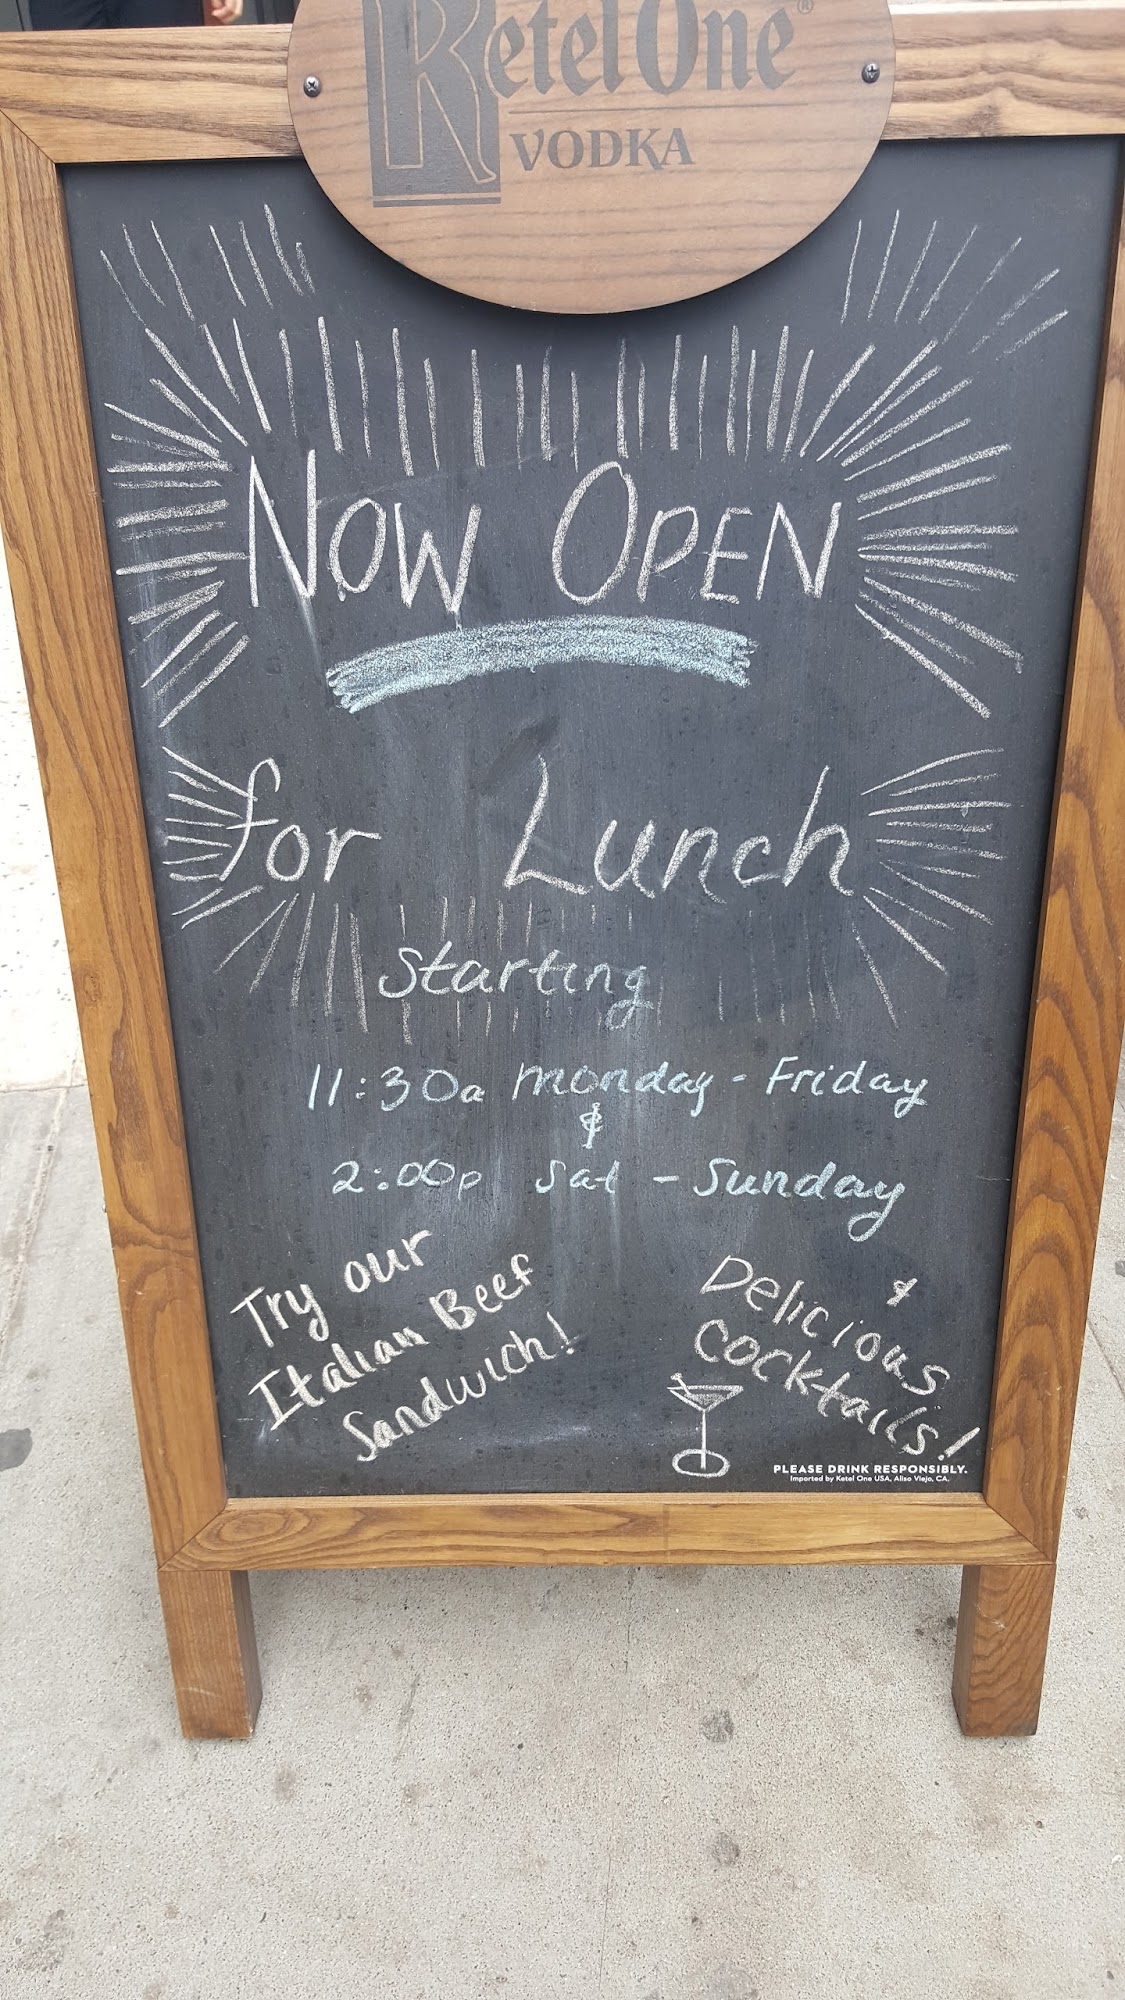 Ketel One®
VODKA
NOW OPEN
for Lunch
Starting
11:30a Monday - Friday
&
2:00p Sat - Sunday
Try our
Italian Beef
Sandwich!
&
Delicious
cocktails!
PLEASE DRINK RESPONSIBLY.
Imported by Ketel One USA, Aliso Viejo, CA.